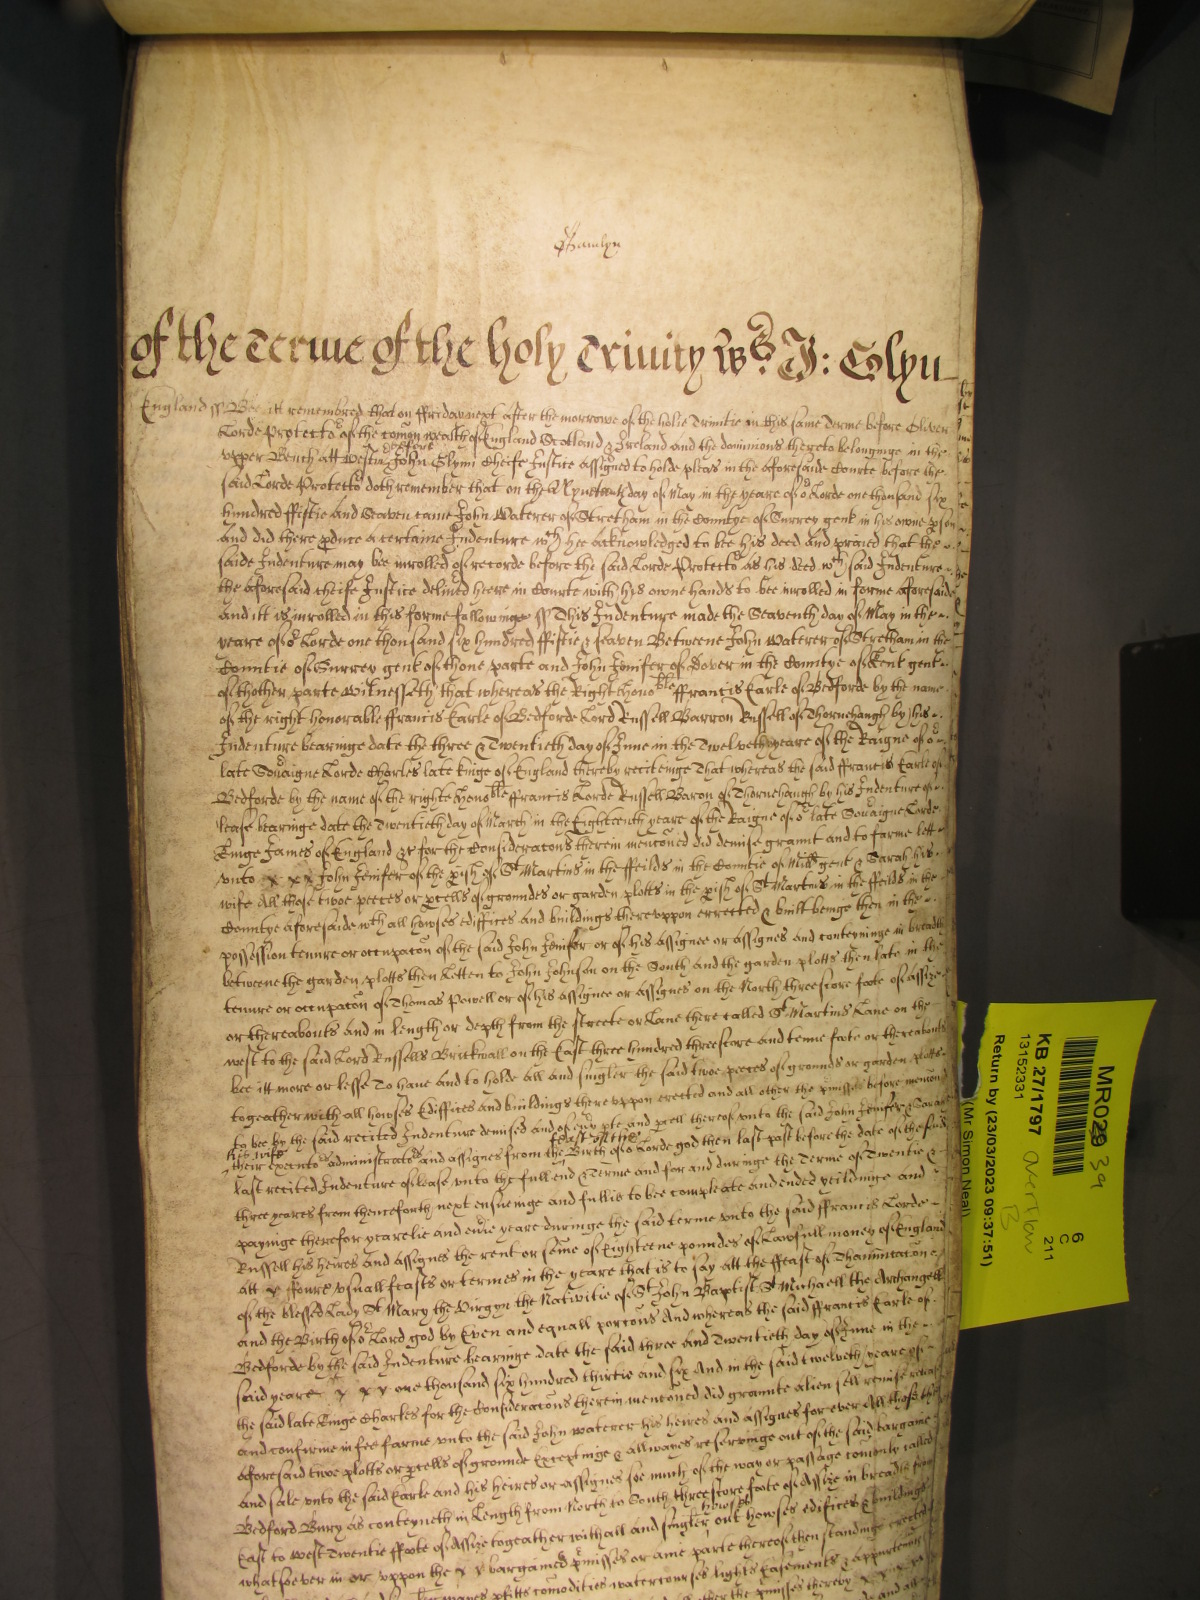 of the Terme of the holy Trinity Ws: J: Glyn
England ss Bee itt remembred that on ffriday next after the morrowe of the holie Trinitie in this same Terme before Oliver
Lorde Protecto.r of the comon wealth of England Scotland & Ireland and the dominions thereto belonginge in the
vpper Bench att Westm.r before John Glynn Cheife Justice assigned to holde pleas in the aforesaide Courte before the
said Lorde Protecto.r doth remember that on the day of May in the yeare of o.r Lorde one thousand six
hundred ffiftie and Seaven came John Waterer of Stretham in the Countye of Surrey gent in his owne pson
and did there pduce a certaine Indenture w.ch hee acknowledged to bee his deed and praied that the
saide Indenture may bee inrolled of recorde before the said Lorde Protecto.r as his deed w.ch said Indenture
the aforesaid cheife Justice delived heere in Courte with his owne hands to bee inrolled in forme aforesaide
and itt is inrolled in this forme followinge ss This Indenture made the Seaventh day of May in the
yeare of o.r Lorde one thousand six hundred ffiftie & seaven Betweene John Waterer of Stretham in the
Countie of Surrey gent of thone parte and John Jenifer of Dover in the Countye of Kent gent
of thother parte Witnesseth that whereas the Right Hono.ble ffrancis Earle of Bedforde by the name
of the right honorable ffrancis Earle of Bedforde Lord Russell Barron Russell of Thornehaugh by his
Indenture bearinge date the three & Twentieth day of June in the Twelveth yeare of the Raigne of o.r
late Sovaigne Lorde Charles late kinge of England thereby reciteinge That whereas the said ffrancis Earle of
Bedforde by the name of the righte Hono.ble ffrancis Lorde Russell Baron of Thornehaugh by his Indenture of
lease bearinge date the Twentieth day of March in the Eighteenth yeare of the Raigne of o.r late Sovaigne Lorde
Kinge James of England &c for the Consideracons therein menconed did demise graunt and to farme lett
vnto x x x John Jenifer of the pish of S.t Martins in the ffeilds in the Countie of Midd gent & Sarah his
wife All those twoe peeces or pcells of groundes or garden plotts in the pish of S.t Martins in the ffeilds in the
Countye aforesaide w.th all howses ediffices and buildings therevppon errected & built beinge then in the
possession tenure or occupacon of the said John Jenifer or of his assignee or assignes and conteyninge in breadth
betweene the garden plotts then Letten to John Johnson on the South and the garden plotts then late in the
tenure or occupacon of Thomas Powell or of his assignee or assignes on the North threescore foote of assize
or thereabouts And in length or depth from the streete or Lane there called S.t Martins Lane on the
west to the said Lord Russells Brickwall on the East three hundred threescore and tenne foote or thereabouts
bee itt more or lesse To have and to holde all and singler the said twoe peeces of grounds or garden plotts
togeather with all howses Ediffices and buildings there vppon erected and all other the pmisses before menconed
to bee by the said recited Indenture demised and of evy pte and pcell thereof vnto the said John Jenifer & Sarah
his wife their executo.rs administrato.rs and assignes from the feast of the Birth of o.r Lorde god then last past before the date of the said
last recited Indenture of lease vnto the full end & Terme and for and duringe the Terme of Twentie &
three yeares from thenceforth next ensueinge and fullie to bee compleate and ended yeildinge and
payinge therefor yearelie and evie yeare duringe the said terme vnto the said ffrancis Lorde
Russell his heires and assignes the rent or some of Eighteene poundes of Lawfull money of England
att x ffoure vsuall feasts or termes in the yeare that is to say att the ffeast of Thanunciacon
of the blessed Lady S.t Mary the Virgyn the Nativitie of S.t John Baptist S.t Michaell the Archangell
and the Birth of o.r Lord god by Even and equall porcons And whereas the said ffrancis Earle of
Bedforde by the said Indenture bearinge date the said three and Twentieth day of June in the
said yeare x x x one thousand six hundred thirtie and six And in the said twelveth yeare of
the said late kinge Charles for the Consideracons therein menconed did graunte alien sell remise
and confirme in fee farme vnto the said John Waterer his heires and assignes for ever All those the
aforesaid twoe plotts or pcells of grounde Exceptinge & allwayes reservinge out of the said bargaine
and sale vnto the said Earle and his heires or assignes soe much of the way or passage comonly called
Bedford Bury as conteyneth in Length from North to South threescore foote of Assize in breadth from
East to West Twentie ffoote of Assize togeather with all and singler howses out howses edifices & buildings
whatsoever in or vppon the x x bargained pmisses or anie parte thereof then standinge erected
pfitts comodities watercourses lights Easements &
MR029
KB 27/1797
13152331
Return by (23/03/2023 09:37:51)
(Mr Simon Neal)
6
C
211